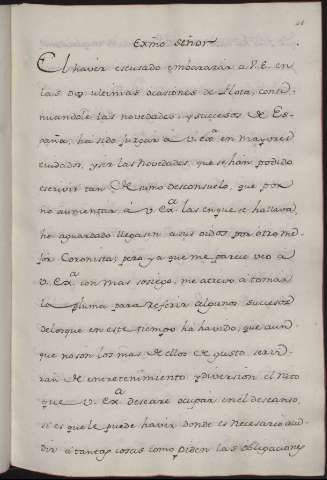 Exmo Señor
El haver escusado embarazar a V.E. en
las dos ultimas ocasiones de flota, conti-
nuandole las novedades, y sucesos de Es-
paña, ha sido juzgar á V. Exª en mayores
cuidados, y ser las Novedades, que se han podido
escrivir tan de sumo desconsuelo, que por
no aumentar á V. Exª las en que se hallava,
he aguardado llegasen a sus oidos por otro me-
jor Coronista; pero ya que me parece veo a
V. Exª con mas sosiego, me atrevo a tomar
la pluma para referir algunos sucesos
de los que en este tiempo ha havido, que aun-
que no son los mas de ellos de gusto, servi-
ran de entretenimiento, y diversion el rato
que V. Exª deseare ocupar en el descanso,
si es que le puede haver donde es necesario acu-
dir á tantas cosas como piden las obligaciones